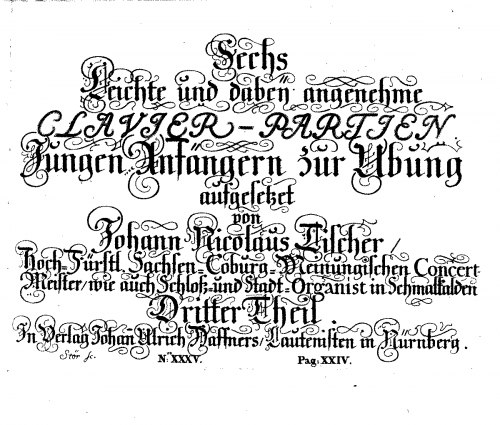 Sechs
Leichte und dabeÿ angenehme
CLAVIER-PARTIEN.
Jungen Anfängern zur Ubung
aufgesetzet
von
Johann Nicolaus Tischer /
Hoch-Fürstl. Sachsen-Coburg-Meinungischen Concert-
Meister / wie auch Schloß- und Stadt-Organist in Schmalkalden
Dritter Theil.
In Verlag Johan Ulrich Haffners / Lautenisten in Nürnberg.
Stör sc. N.º XXXV. Pag: XXIV.